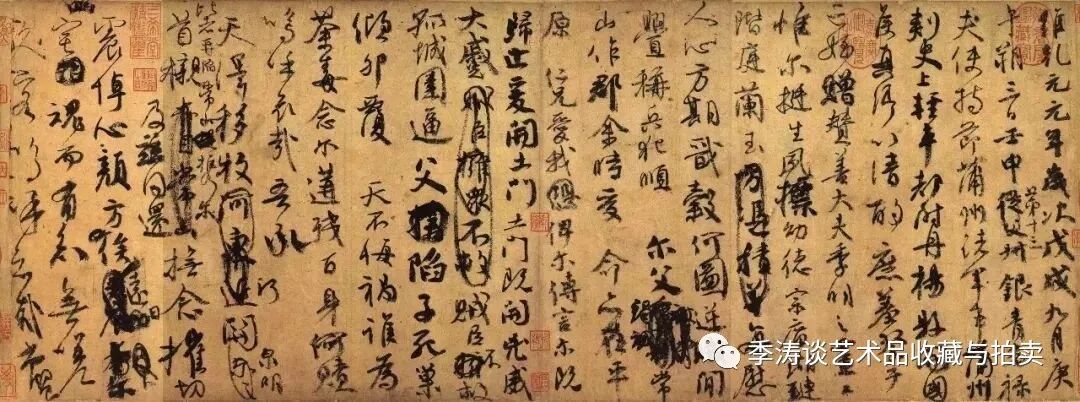 維乾元元年歲次戊戌九月庚
午朔三日壬申第十三從父銀青光祿
夫使持節蒲州諸軍事蒲州
刺史上輕車都尉丹楊縣開國
侯真卿以清酌庶羞祭于
亡姪贈贊善大夫季明之靈曰
惟爾挺生夙標幼德宗廟瑚璉
階庭蘭玉方憑積善每慰
人心方期戩穀何圖逆賊間
釁稱兵犯順爾父竭誠常
山作郡余時受命亦在平
原仁兄愛我恐俾爾傳言爾既
歸止爰開土門土門既開凶威
大蹙賊臣擁眾不救賊臣不救
孤城圍逼父陷子死巢
傾卵覆天不悔禍誰為
荼毒念爾遘殘百身何贖
嗚乎哀哉吾承
天澤移牧河東近河關泉明
比者再陷常山攜爾
首櫬亦自常山撫念摧切
及茲同還
震悼心顏方俟遠日
宅魂而有知無嗟
久客嗚呼哀哉尚饗
季涛谈艺术品收藏与拍卖